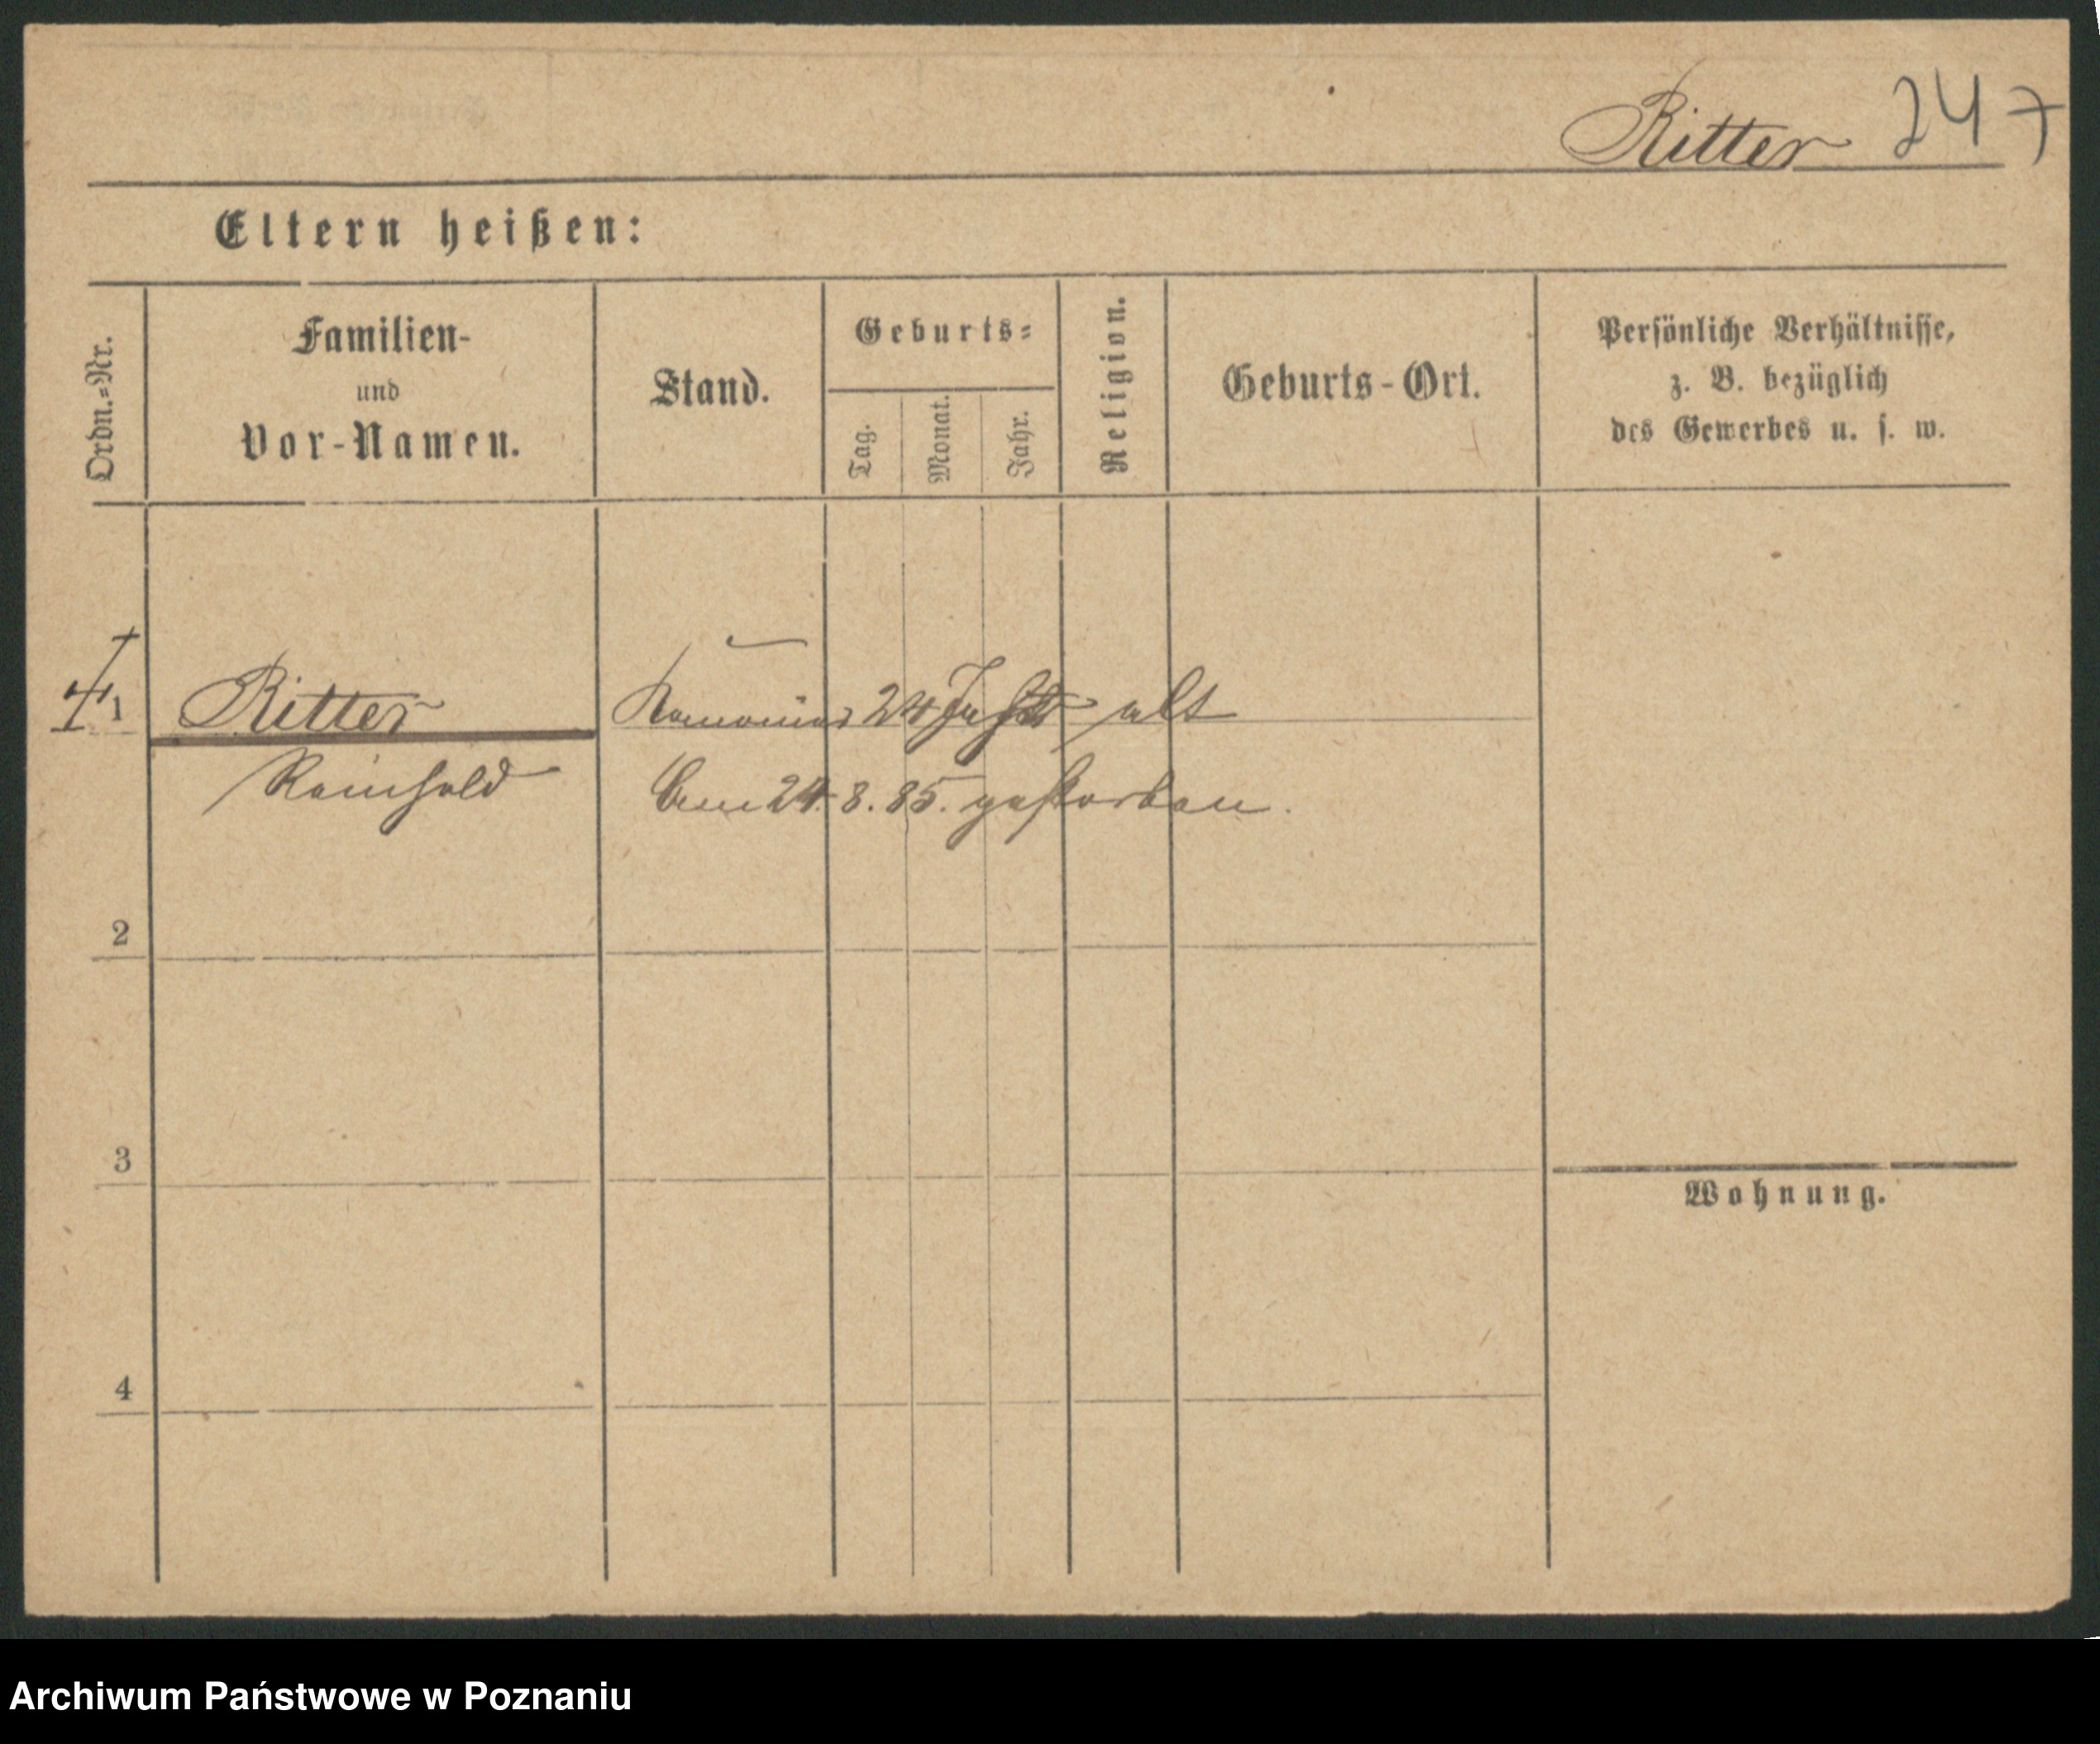 Ritter 247
Eltern heißen:
Ordn.-Nr.
Familien-
und
Vor-Namen.
Stand.
Geburts-
Tag.
Monat.
Jahr.
Religion.
Geburts-Ort.
Persönliche Verhältnisse,
z. B. bezüglich
des Gewerbes u. s. w.
1
Ritter
24 Jahre alt
Reinhold
Am 24. 8. 85. gestorben.
2
3
4
Wohnung.
Archiwum Państwowe w Poznaniu